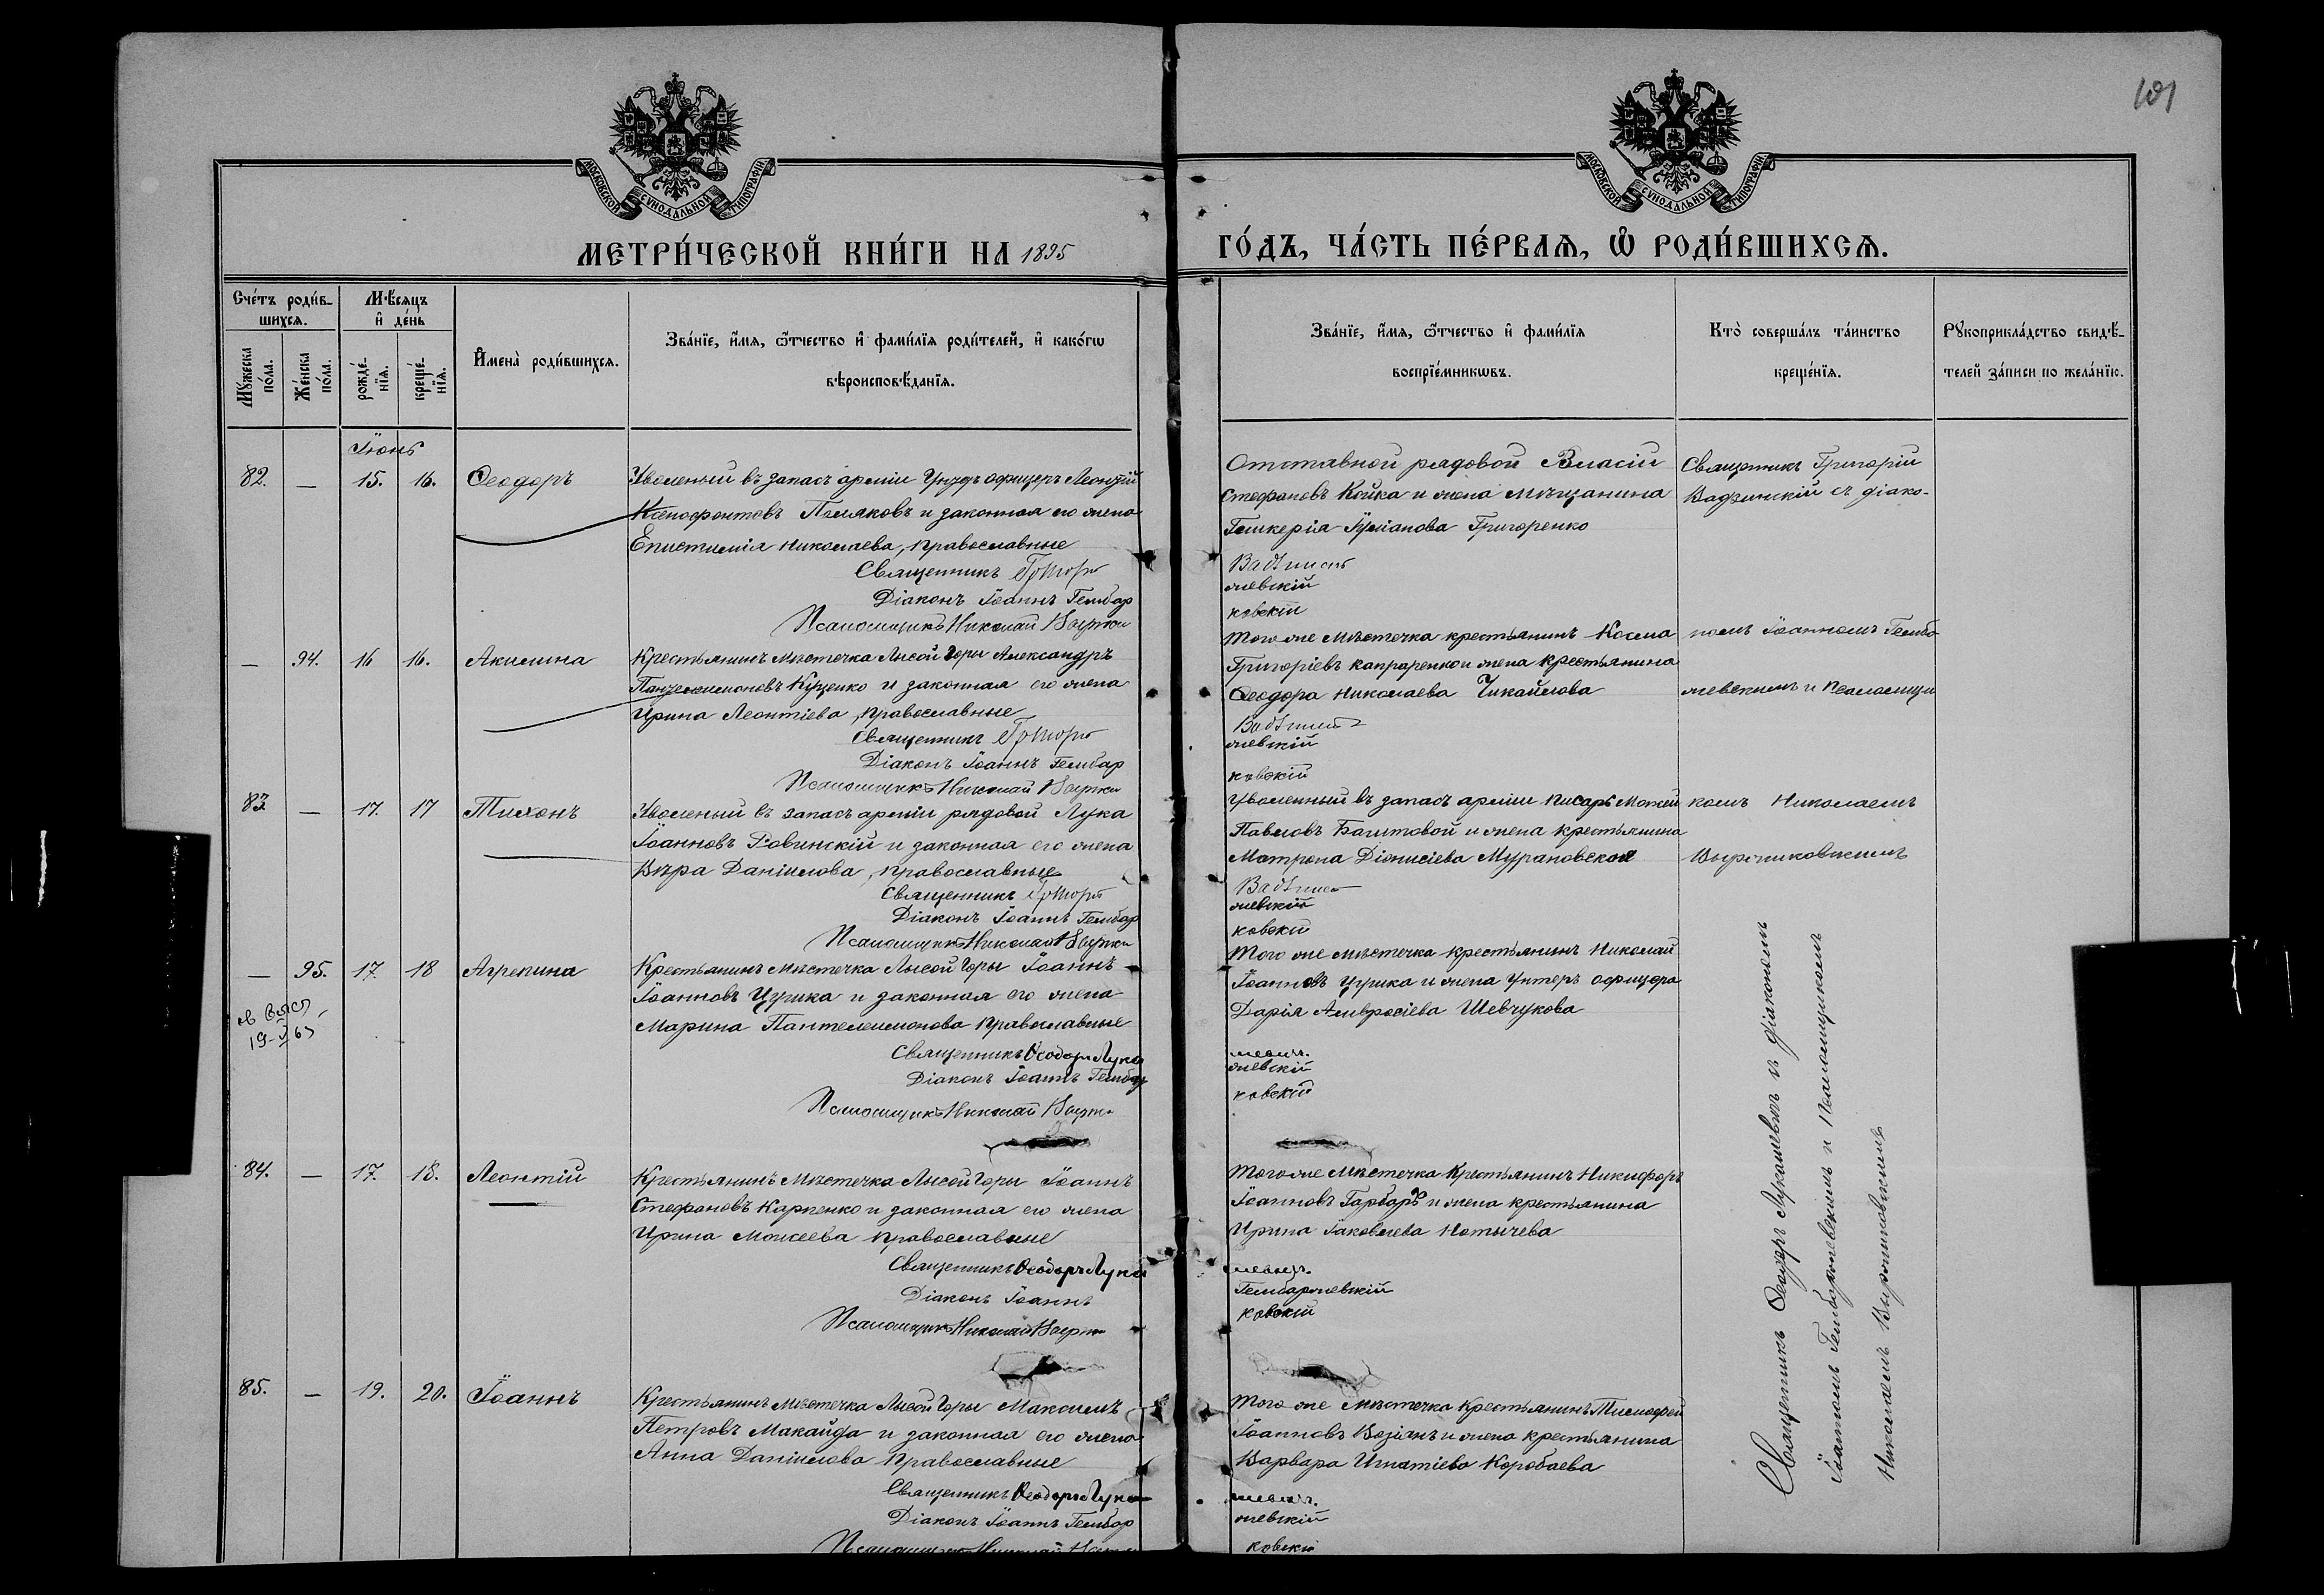 101
МОСКОВСКОЙ СѴНОДАЛЬНОЙ ТИПОГРАФІИ
МОСКОВСКОЙ СѴНОДАЛЬНОЙ ТИПОГРАФІИ
МЕТРИ́ЧЕСКОЙ КНИ́ГИ НА 1895 ГО́ДЪ, ЧА́СТЬ ПЕ́РВАѦ, Ѡ҆ РОДИ́ВШИХСѦ.
Сче́тъ роди́в-
шихсѧ.
Мꙋ́жеска
по́ла.
Же́нска
по́ла.
М́ѣсѧцъ
и҆ де́нь
рожде́-
нїѧ.
креще́-
нїѧ.
И҆мена̀ роди́вшихсѧ.
Зва́нїе, и҆́мѧ, ѻ҆́тчество и҆ фами́лїѧ роди́телей, и҆ како́гѡ
вѣроисповѣ́данїѧ.
Зва́нїе, и҆́мѧ, ѻ҆́тчество и҆ фами́лїѧ
воспрїе́мникѡвъ.
Кто̀ соверша́лъ та́инство
креще́нїѧ.
Рꙋкоприкла́дство свидѣ́-
телей за́писи по жела́нїю.
Іюнь
82. — 15. 16. Ѳеодоръ
Уволеный въ запасъ арміи Унтеръ офицеръ Леонтій
Ксенофонтовъ Поляковъ и законная его жена
Епистимія Николаева, православные
Священникъ Григорій
Діаконъ Іоаннъ Гембар
Псаломщикъ Николай
Отставной рядовой Власій
Стефановъ Койка и жена мѣщанина
Гликерія Григоренко
жевскій
ковскій
Священникъ Григорій
съ діако-
— 94. 16 16. Акилина
Крестьянинъ мѣстечка Лысой Горы Александръ
Пантелеимоновъ Куценко и законная его жена
Ирина Леонтіева, православные
Священникъ Григорій
Діаконъ Іоаннъ Гембар
Псаломщикъ Николай
Того же мѣстечка крестьянинъ Косма
Григоріевъ и жена крестьянина
Ѳеодора Николаева Чикайлова
жевскій
ковскій
номъ Іоанномъ Гембо
жевскимъ и Псаломщи
83 — 17. 17 Тихонъ
Уволеный въ запасъ арміи рядовой Лука
Іоанновъ Ровинскій и законная его жена
Вѣра Даніилова, православные
Священникъ Григорій
Діаконъ Іоаннъ Гембар
Псаломщикъ Николай
Уволенный въ запасъ арміи писарь
Павловъ Баштовой и жена крестьянина
Матрона Діонисіева Мурановская
жевскій
ковскій
комъ Николаемъ
— 95. 17. 18 Агрепина
Крестьянинъ мѣстечка Лысой Горы Іоаннъ
Іоанновъ Цурика и законная его жена
Марина Пантелеимонова православные
Священникъ Ѳеодоръ Лука
Діаконъ Іоаннъ Гембар
Псаломщикъ Николай
Того же мѣстечка крестьянинъ Николай
Іоанновъ Цурика и жена Унтеръ офицера
Дарія Амвросіева Шевчукова
шевичъ.
жевскій
ковскій
84. — 17. 18. Леонтій
Крестьянинъ мѣстечка Лысой Горы Іоаннъ
Стефановъ Карпенко и законная его жена
Ирина Моисеева православные
Священникъ Ѳеодоръ Лука
Діаконъ Іоаннъ
Псаломщикъ Николай
Того же мѣстечка Крестьянинъ Никифоръ
Іоанновъ Гарбарь и жена крестьянина
Ирина Іаковлева
шевичъ.
Гембаржевскій
ковскій
85. — 19. 20. Іоаннъ
Крестьянинъ мѣстечка Лысой Горы Максимъ
Петровъ Макайда и законная его жена
Анна Даніилова православные
Священникъ Ѳеодоръ Лука
Діаконъ Іоаннъ Гембар
Псаломщикъ Николай
Того же мѣстечка крестьянинъ Тимофей
Іоанновъ Возіянъ и жена крестьянина
Варвара Игнатіева Коробаева
шевичъ.
жевскій
ковскій
Священникъ Ѳеодоръ Лукашевичъ съ діакономъ
Іоанномъ Гембаржевскимъ и Псаломщикомъ
Николаемъ